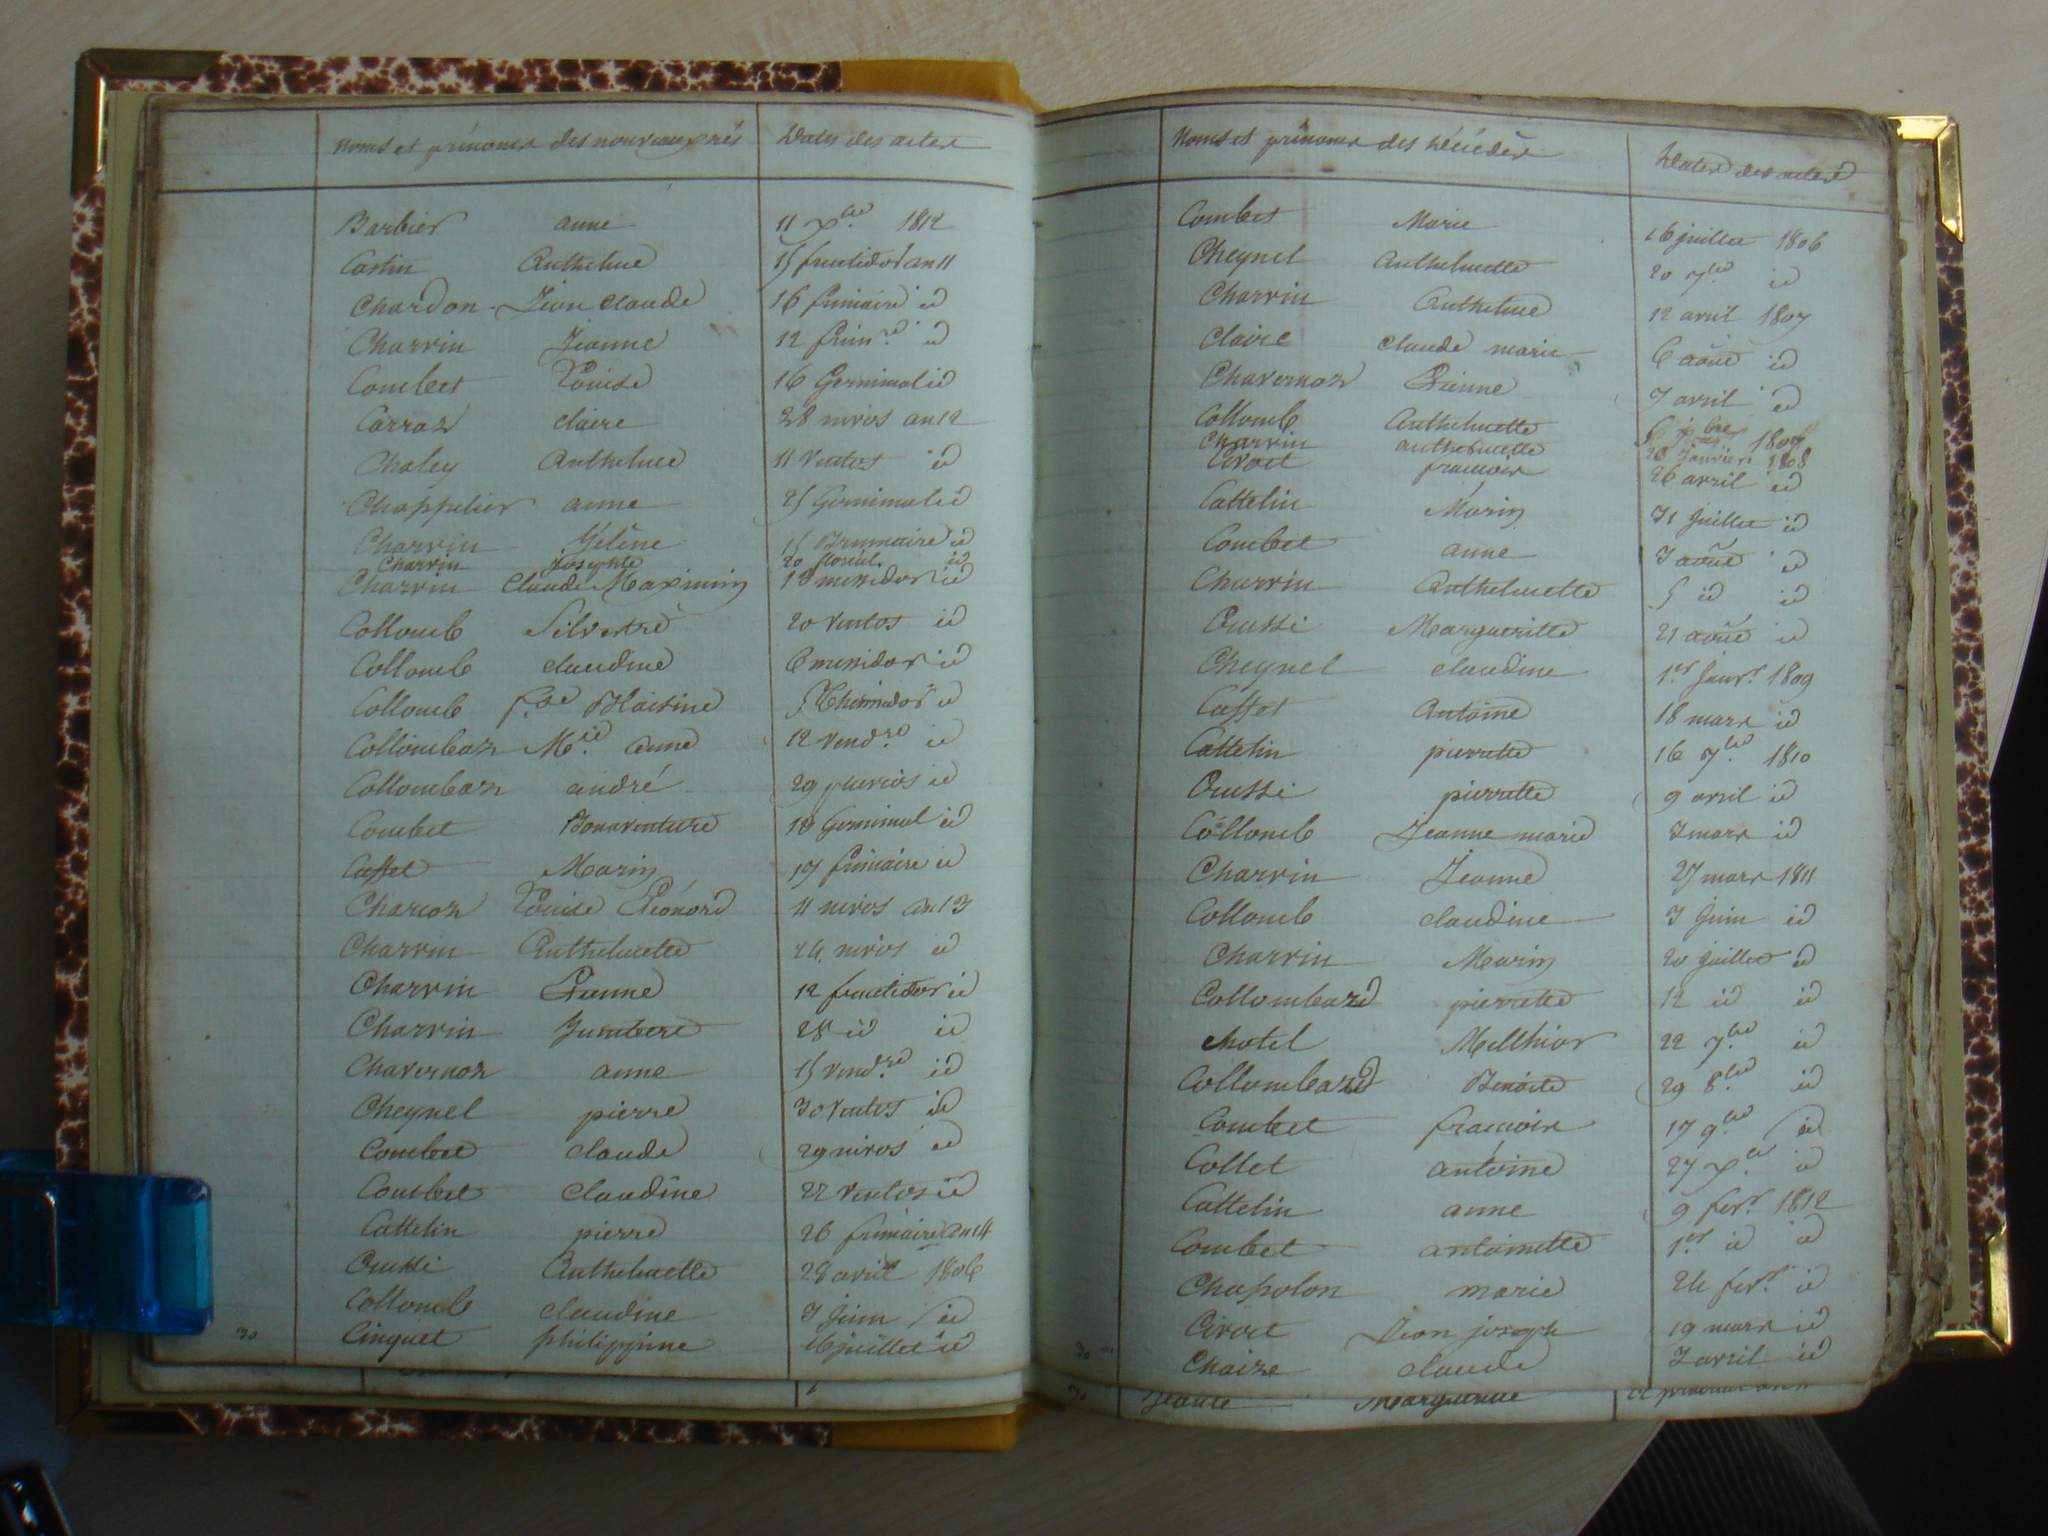 Noms et prénoms des nouveaux nés Dates des actes
Barbier anne 11 Xbre 1812
Costin Anthelme 15 fructidor an 11
Chardon Jean Claude 16 frimaire id
Charvin Jeanne 12 frim.re id
Combet Louise 16 Germinal id
Carraz claire 28 nivos an 12
Chaley Anthelme 11 Ventos id
Chappelier anne 25 Germinal id
Charvin hélène 15 Brumaire id
Charvin Josephte 20 floréal id
Charvin Claude Maximin 18 messidor id
Collomb Silvestre 20 Ventos id
Collomb claudine 6 messidor id
Collomb f.se Blaisine 5 Thermidor id
Collombaz M.ie anne 12 Vend.re id
Collombaz andré 29 pluvios id
Combet Bonaventure 18 Germinal id
Caffet Marin 17 frimaire id
Charcoz Louise Léonord 11 nivos an 13
Charvin Anthelmette 24 nivos id
Charvin Etienne 12 fructidor id
Charvin Humbert 28 id id
Chavernoz anne 15 Vend.re id
Cheynel pierre 30 Ventos id
Combet claude 29 nivos id
Combet Claudine 22 Ventos id
Cattelin pierre 26 frimaire an 14
Cussi Anthelmette 28 avril 1806
Collomb claudine 3 Juin id
30 Cinquet philippine 16 juillet id
Noms et prénoms des décédés Dates des actes
Combet Marie 16 juillet 1806
Cheynel Anthelmette 20 7bre id
Charvin Anthelme 12 avril 1807
Claire claude marie 6 août id
Chavernoz Etienne 7 avril id
Collomb Anthelmette 1807
Charvin anthelmette 26 Janvier 1808
Civoct francois 26 avril id
Cattelin Marin 31 Juillet id
Combet anne 3 août id
Charvin Anthelmette 5 id id
Cussi Margueritte 21 août id
Cheynel claudine 1.er Janv.r 1809
Caffet Antoine 18 mars id
Cattelin pierrette 16 7bre 1810
Cussi pierrette 9 avril id
Collomb Jeanne marie 3 mars id
Charvin Jeanne 27 mars 1811
Collomb claudine 3 Juin id
Charvin Marin 20 Juillet id
Collombazd pierrette 12 id id
Chotel Mellhior 22 7bre id
Collombazd Benoite 29 8bre id
Combet francois 17 9bre id
Collet antoine 27 Xbre id
Cattelin anne 9 fev.r 1812
Combet antoinette 1.er id id
Chapolon marie 24 fev.r id
Civoct Jean joseph 19 mars id
30 Chaize claude 3 avril id
30